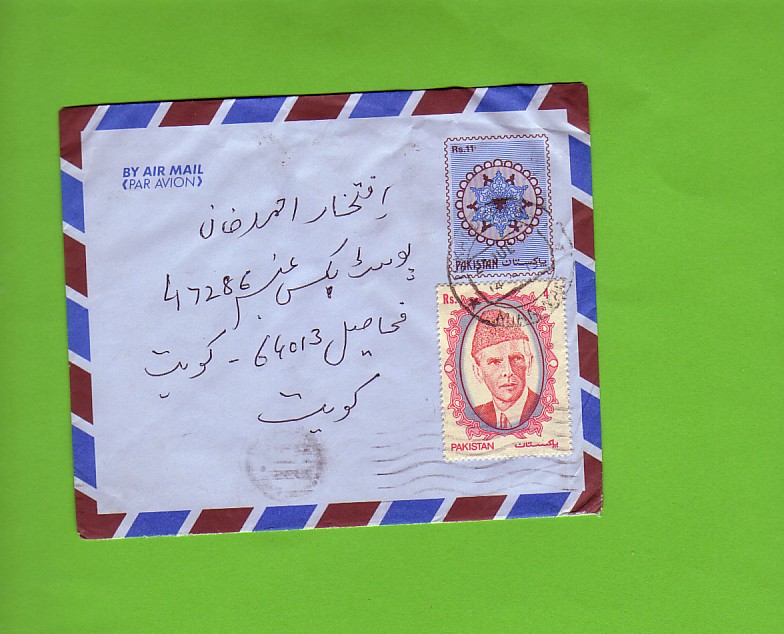 BY AIR MAIL
(PAR AVION)
Rs.11
PAKISTAN پاکستان
افتخار احمد خان
پوسٹ بکس نمبر 47286
فحاحیل 64013 - کویت
کویت
Rs. 4
PAKISTAN پاکستان